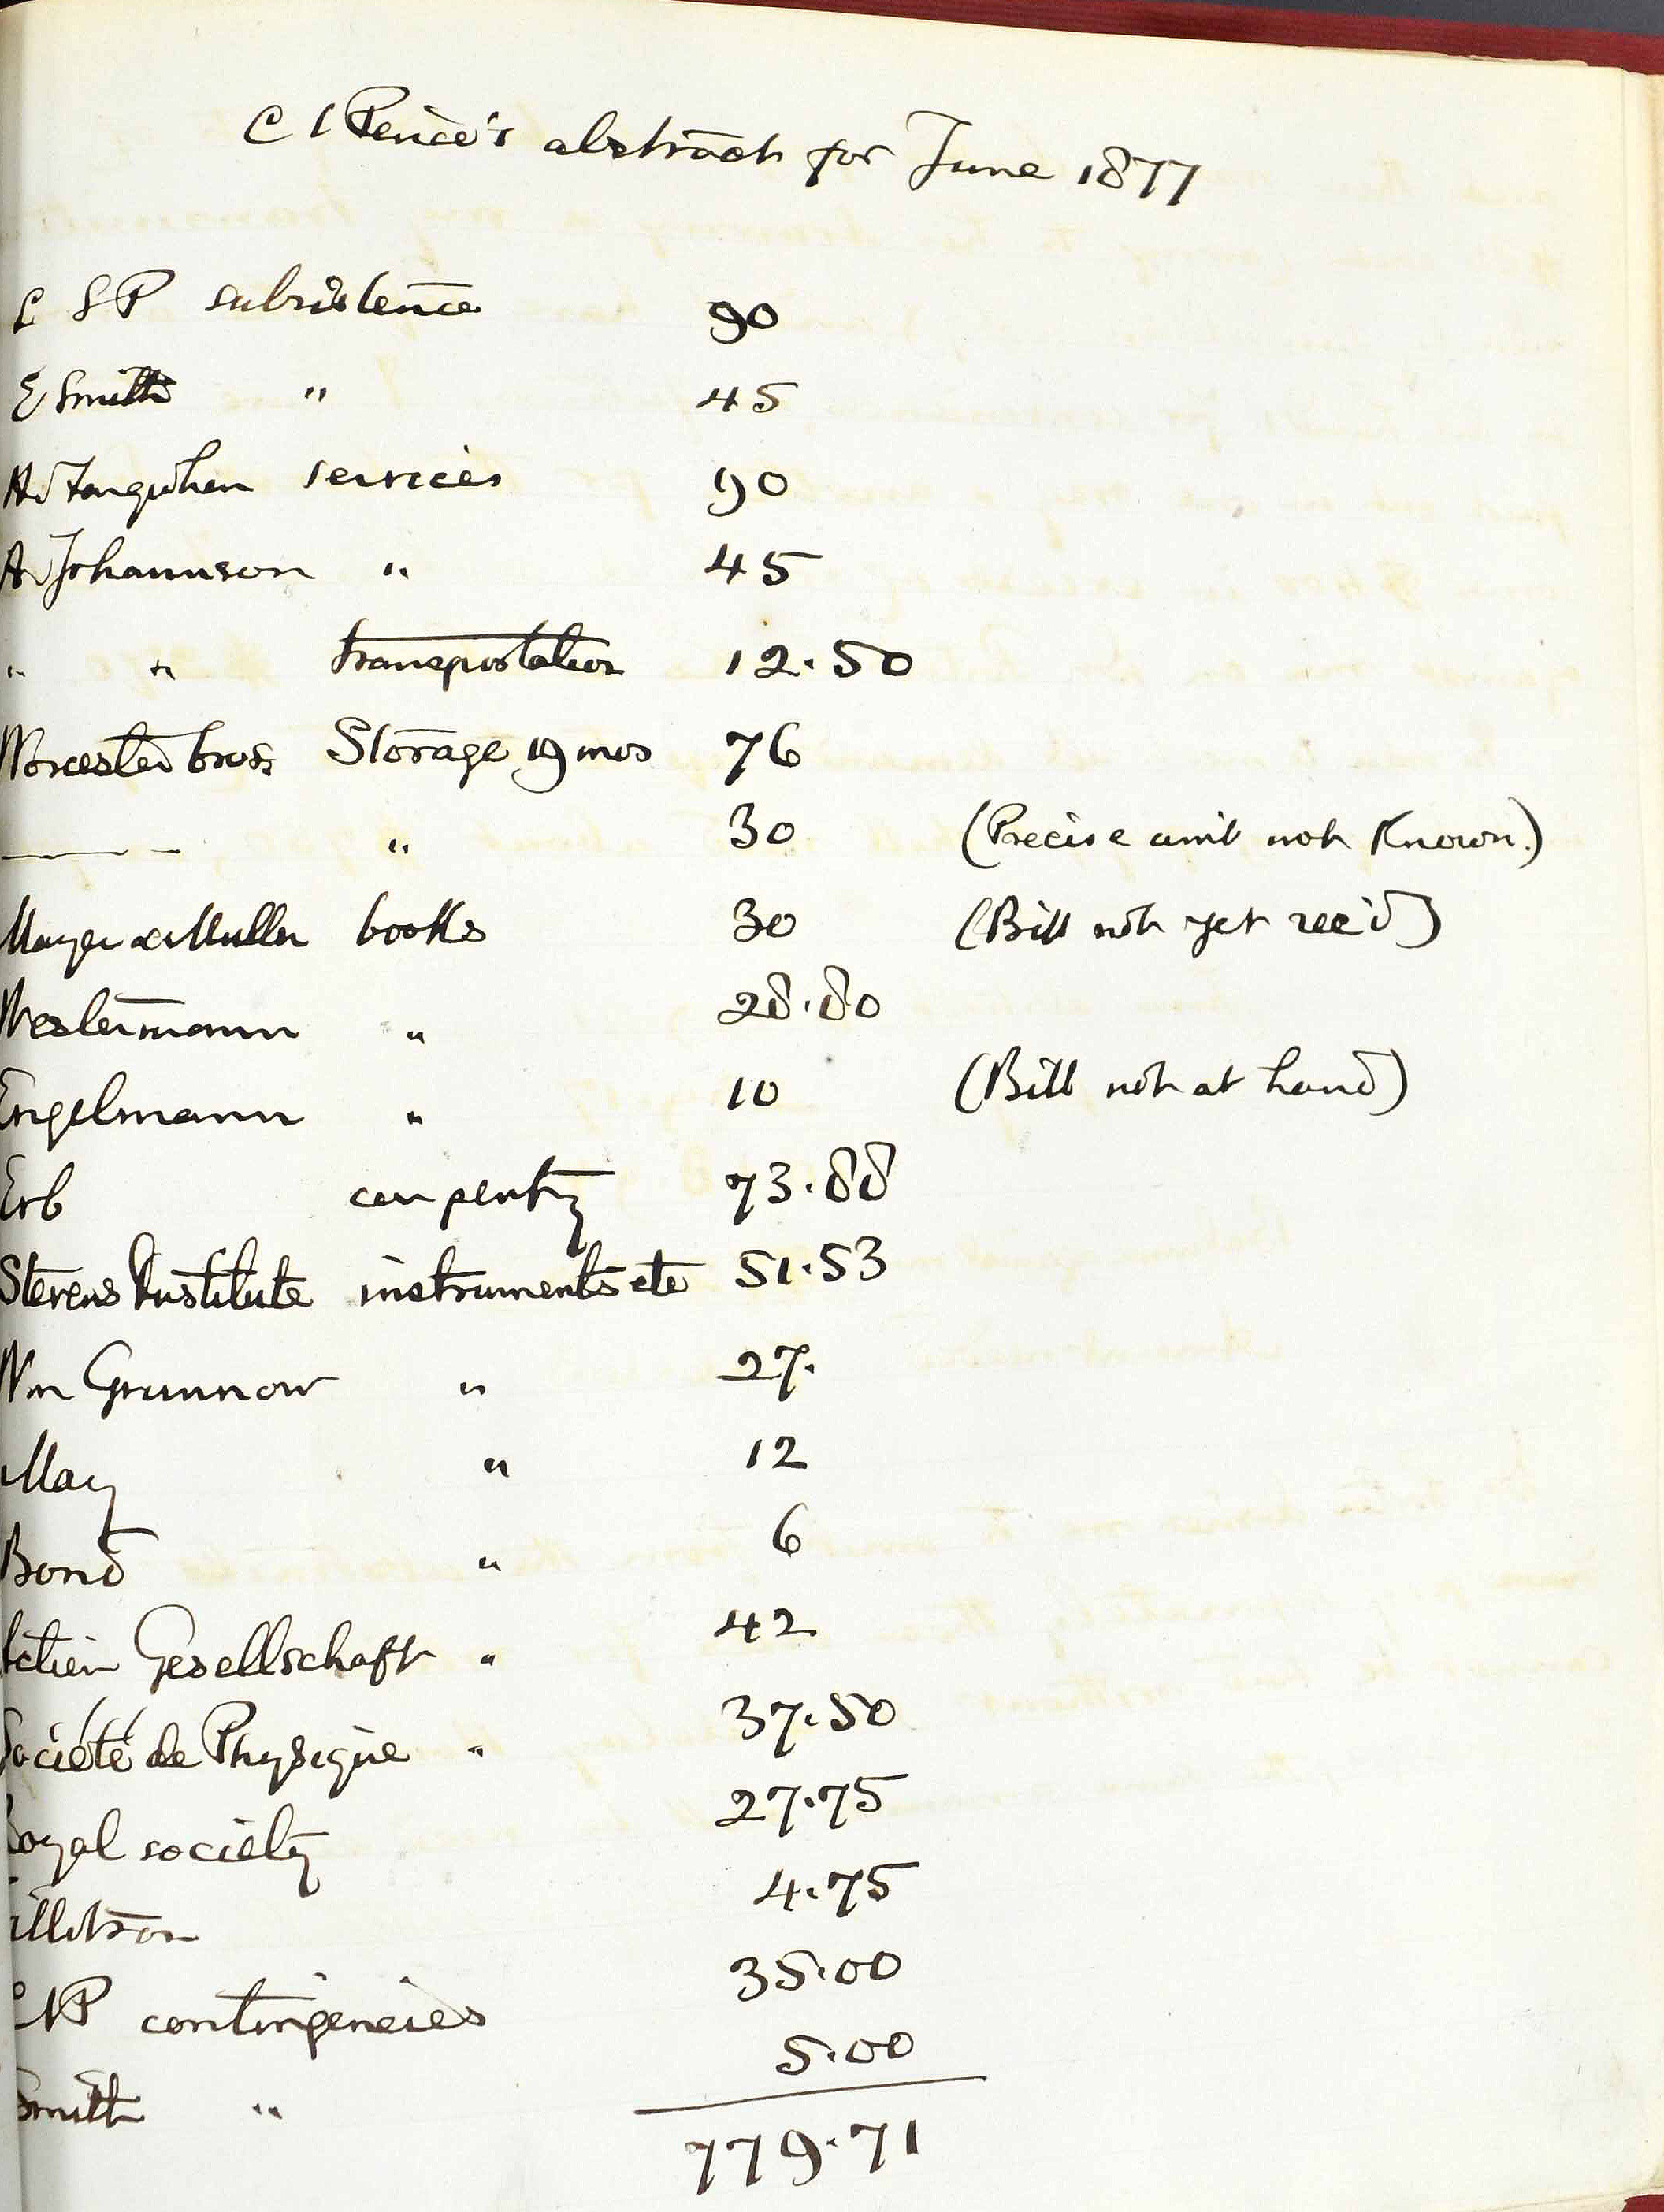 C S Peirce's abstract for June 1877
C S P subsistence 90
E Smith " 45
H Farquhar services 90
A Johannson " 45
" " transportation 12.50
Worcester bros Storage 19 mos 76
—— " 30 (Precise amt not known.)
Mayer & Muller books 30 (Bill not yet rec'd)
Westermann " 28.80
Engelmann " 10 (Bill not at hand)
Erb carpentry 73.88
Stevens Institute instruments etc 51.53
Wm Grunnow " 27.
May " 12
Bond " 6
Actien Gesellschaft " 42
Société de Physique " 37.50
Royal society 27.75
Tillotson 4.75
C S P contingencies 35.00
Smith " 5.00
779.71